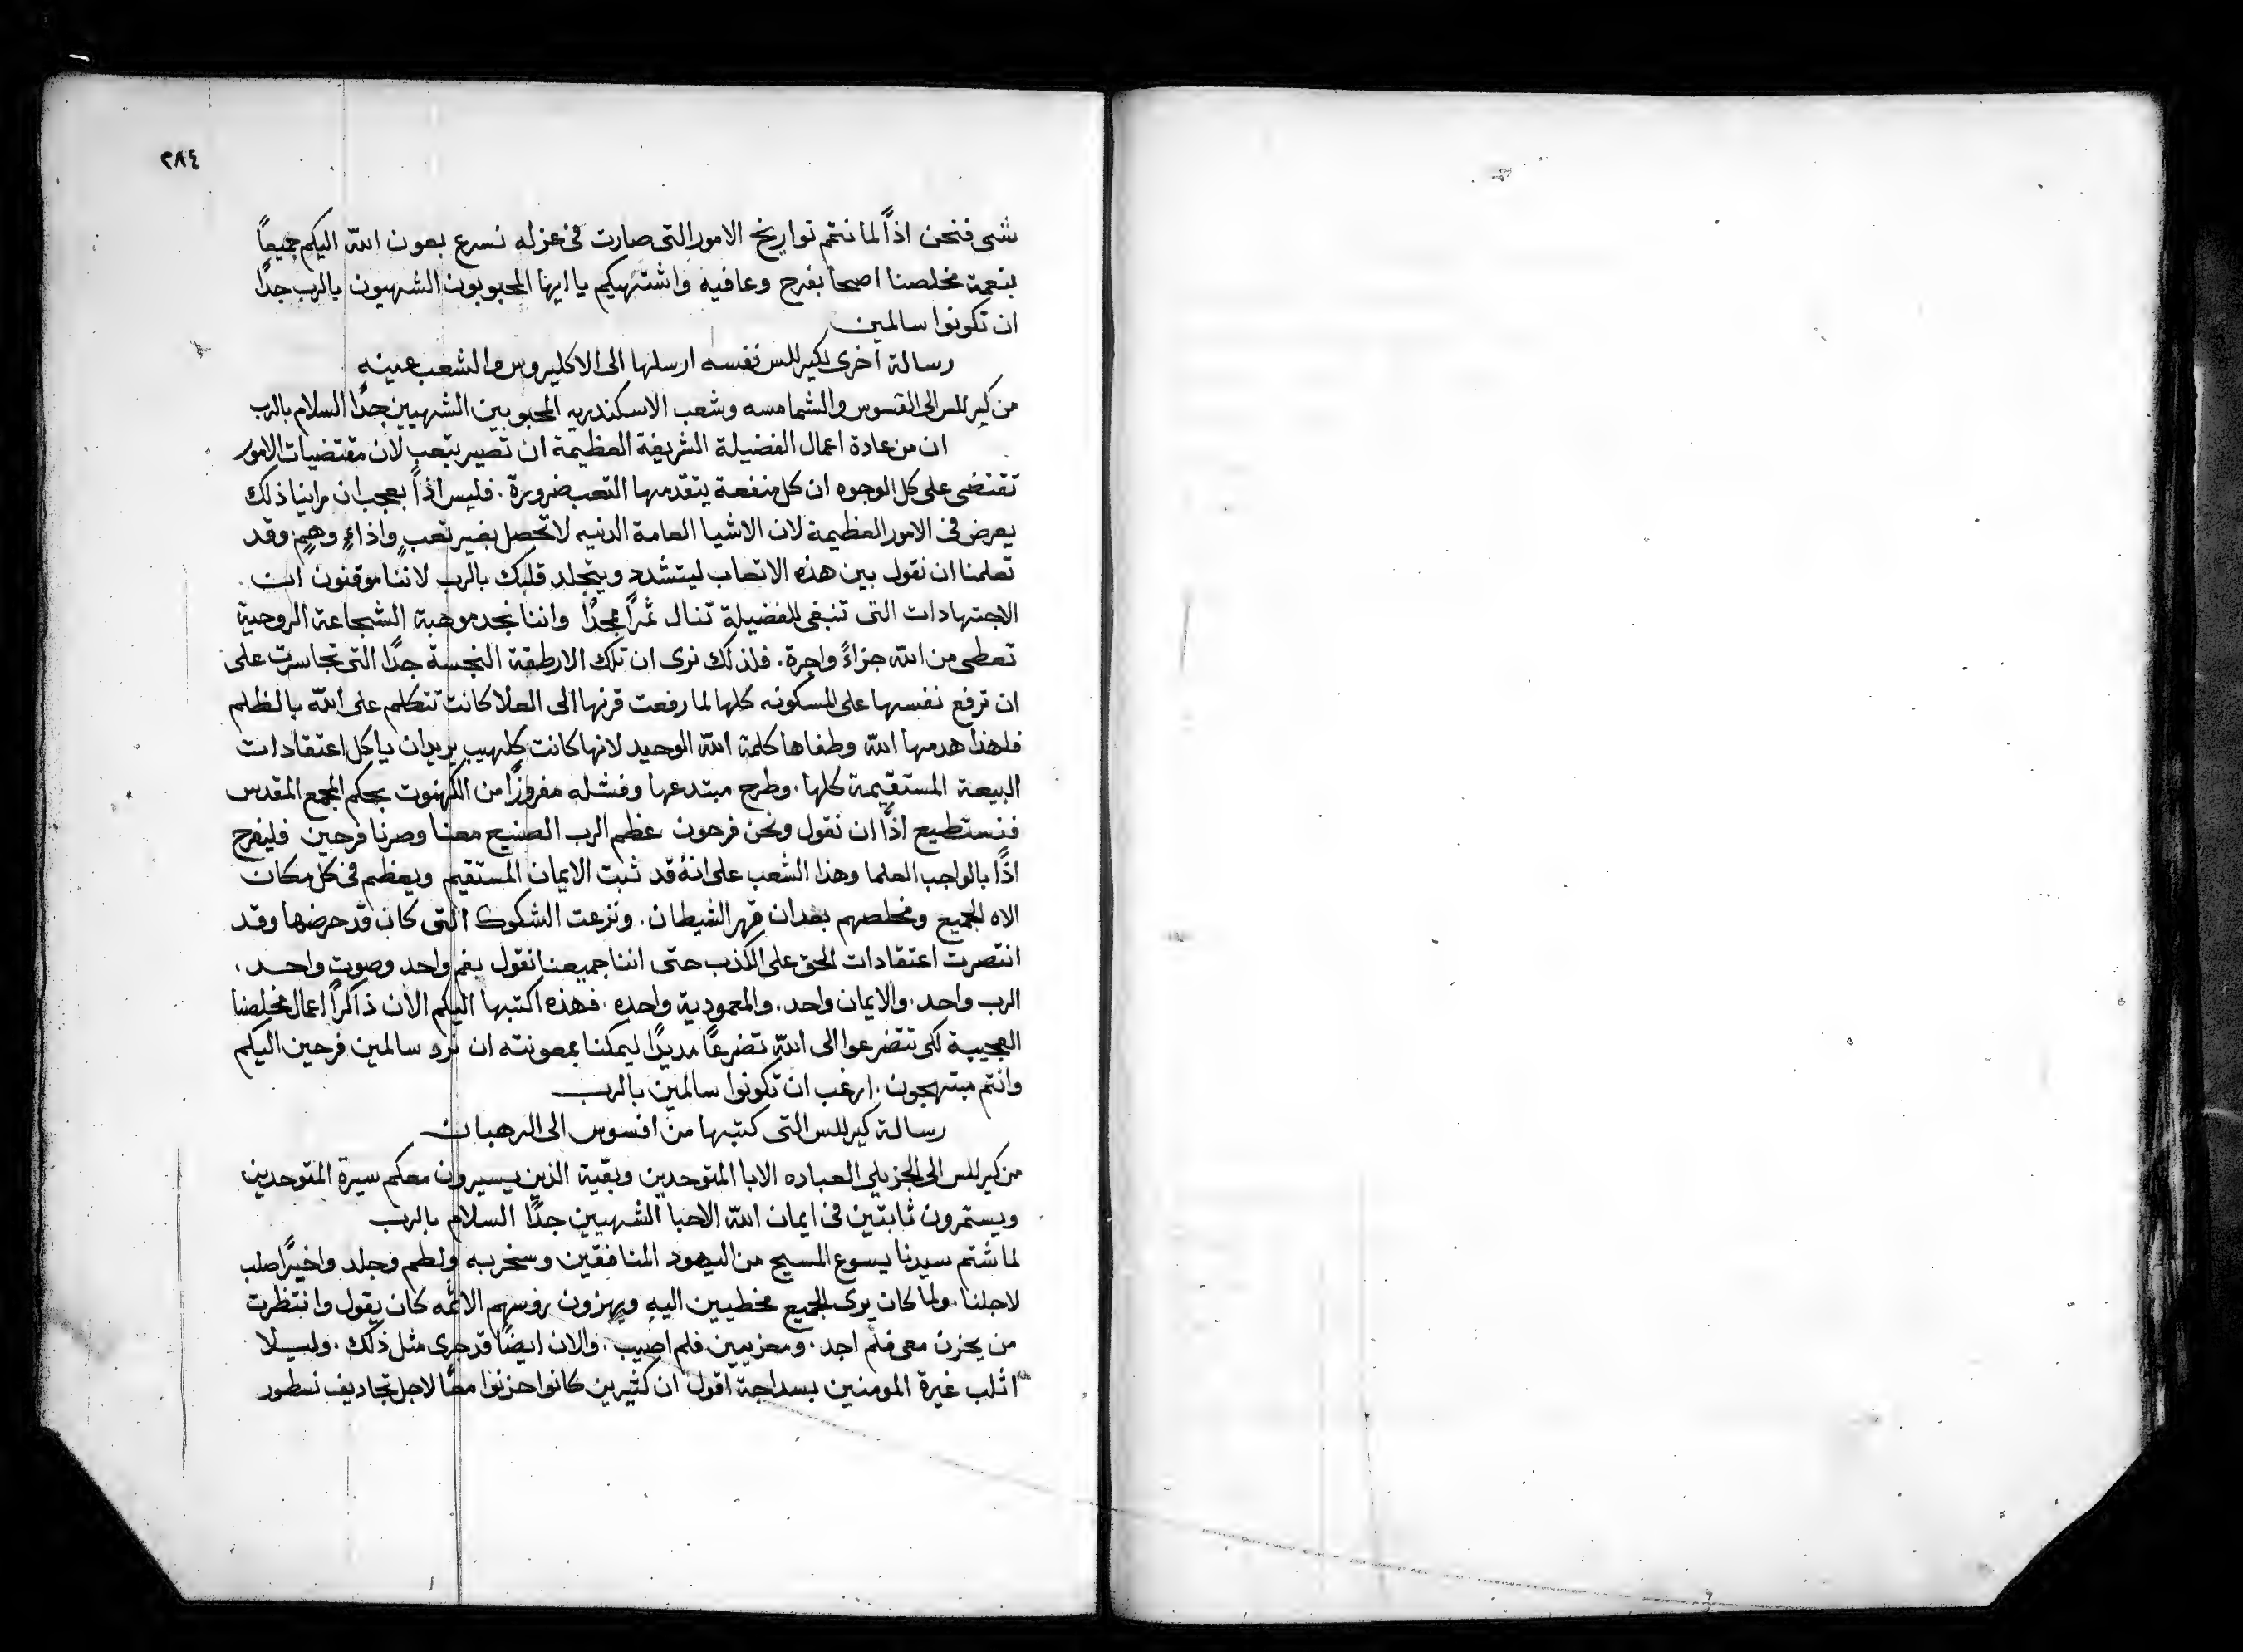 ٢٨٤
شى فنحن اذًا لما نتمم تواريخ الامور التى صارت فى عزله نسرع بعون الله اليكم جميعًا
بنعمة مخلصنا اصحا بفرح وعافيه واشتهيكم يا ايها المحبوبون الشهيون بالرب جدًا
ان تكونوا سالمين
رسالة اخرى لكيرللس نفسه ارسلها الى الاكليروس والشعب عينه
من كيرللس الى القسوس والشمامسه وشعب الاسكندريه المحبوبين الشهيين جدًا السلام بالرب
ان من عادة اعمال الفضيلة الشريفة العظيمة ان تصير بتعب لان مقتضيات الامور
تقتضى على كل الوجوه ان كل منفعة يتقدمها التعب ضرورة. فليس اذًا بعجب ان راينا ذلك
يعرض فى الامور العظيمة لان الاشيا العامة الدنيه لا تحصل بغير تعبٍ واذاءٍ وهمٍ وقد
تعلمنا ان نقول بين هذه الاتعاب ليتشدد ويتجلد قلبك بالرب لاننا موقنون ان
الاجتهادات التى تنبغى للفضيلة تنال ثمرًا مجدًا واننا نجد موهبة الشجاعة الروحية
تعطى من الله جزاءً واجرة. فلذلك نرى ان تلك الارطقة النجسة جدًا التى تجاسرت على
ان ترفع نفسها على المسكونه كلها لما رفعت قرنها الى العلا كانت تتكلم على الله بالظلم
فلهذا هدمها الله وطفاها كلمة الله الوحيد لانها كانت كلهيب يريد ان ياكل اعتقادات
البيعة المستقيمة كلها. وطرح مبتدعها وفشله مفروزًا من الكهنوت بحكم المجمع المقدس
فنستطيع اذًا ان نقول ونحن فرحون عظم الرب الصنيع معنا وصرنا فرحين فليفرح
اذًا بالواجب العلما وهذا الشعب على انهُ قد ثبت الايمان المستقيم ويعظم فى كل مكان
الاه الجميع ومخلصهم بعد ان قهر الشيطان. ونزعت الشكوك التى كان قد حرضها وقد
انتصرت اعتقادات الحق على الكذب حتى اننا جميعنا نقول بفم واحد وصوت واحد.
الرب واحد. والايمان واحد. والمعمودية واحده. فهذه اكتبها اليكم الان ذاكرًا اعمال مخلصنا
العجيبة لكى تتضرعوا الى الله تضرعًا مديدًا ليمكننا بمعونته ان نرد سالمين فرحين اليكم
وانتم مبتهجون. ارغب ان تكونوا سالمين بالرب
رسالة كيرللس التى كتبها من افسوس الى الرهبان
من كيرللس الى الجزيلى العباده الابا المتوحدين وبقية الذين يسيرون معكم سيرة المتوحدين
ويستمرون ثابتين فى ايمان الله الاحبا الشهيين جدًا السلام بالرب
لما شتم سيدنا يسوع المسيح من اليهود المنافقين وسخر به ولطم وجلد واخيرًا صلب
لاجلنا. ولما كان يرى الجميع مخطيين اليه ويهزون روسهم الاثمه كان يقول وانتظرت
من يحزن معى فلم اجد. ومعزيين فلم اصيب. والان ايضًا قد جرى مثل ذلك. وليلا
اثلب غيرة المومنين بسداجة اقول ان كثيرين كانوا حزنوا معًا لاجل تجاديف نسطور